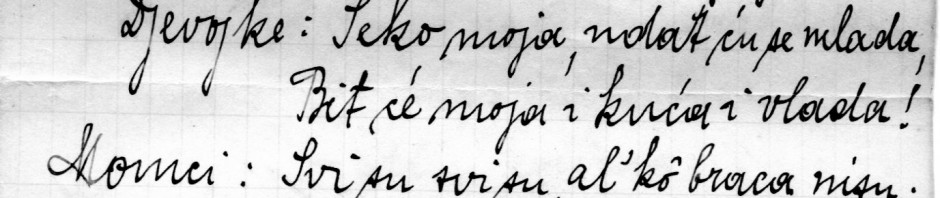 Djevojke: Seko moja, udat ću se mlada,
Bit će moja i kuća i vlada!
Momci: Svi su svi su al' kô braca nisu.